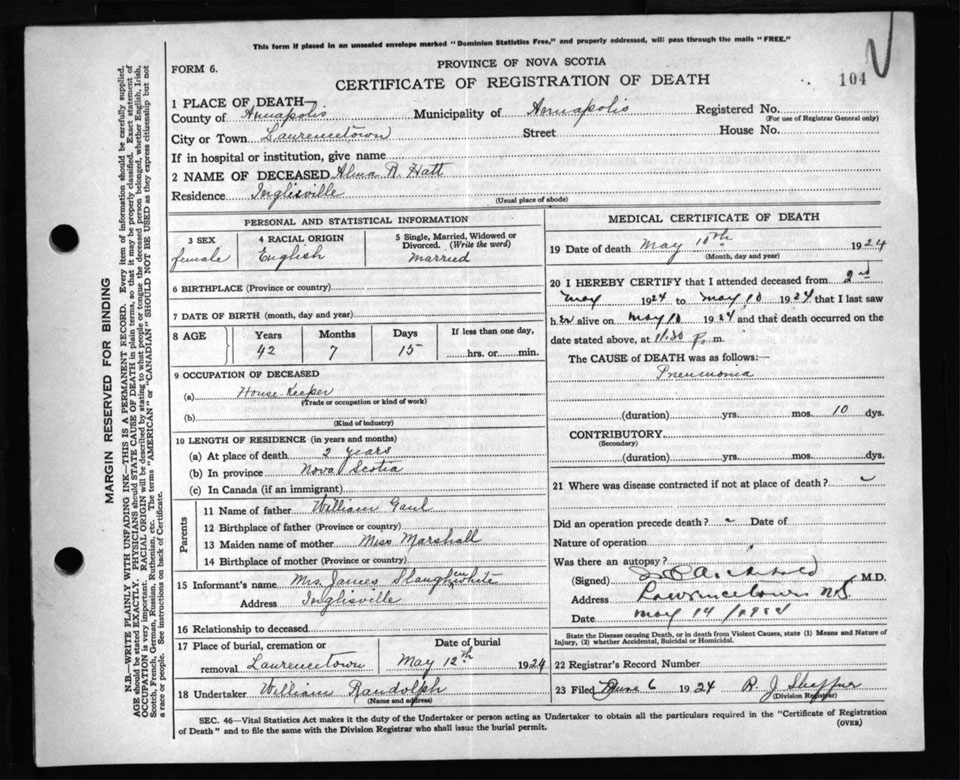 This form if placed in an unsealed envelope marked "Dominion Statistics Free," and properly addressed, will pass through the mails "FREE."
FORM 6.
PROVINCE OF NOVA SCOTIA
CERTIFICATE OF REGISTRATION OF DEATH
104
1 PLACE OF DEATH—
County of Annapolis Municipality of Annapolis Registered No.
(For use of Registrar General only)
City or Town Laurencetown Street House No.
If in hospital or institution, give name
2 NAME OF DECEASED Alma R. Hatt
Residence Inglisville
(Usual place of abode)
PERSONAL AND STATISTICAL INFORMATION
3 SEX 4 RACIAL ORIGIN 5 Single, Married, Widowed or
Divorced. (Write the word)
female English Married
6 BIRTHPLACE (Province or country)
7 DATE OF BIRTH (month, day and year)
8 AGE Years Months Days If less than one day,
42 7 15 hrs. or min.
9 OCCUPATION OF DECEASED
(a) House-Keeper
(Trade or occupation or kind of work)
(b)
(Kind of industry)
10 LENGTH OF RESIDENCE (in years and months)
(a) At place of death 2 years
(b) In province Nova Scotia
(c) In Canada (if an immigrant)
Parents
11 Name of father William Gaul
12 Birthplace of father (Province or country)
13 Maiden name of mother Miss Marshall
14 Birthplace of mother (Province or country)
15 Informant's name Mrs. James Slaughenwhite
Address Inglisville
16 Relationship to deceased
17 Place of burial, cremation or Date of burial
removal Laurencetown May 12th 1924
18 Undertaker William Randolph
(Name and address)
MEDICAL CERTIFICATE OF DEATH
19 Date of death May 10th 1924
(Month, day and year)
20 I HEREBY CERTIFY that I attended deceased from 2nd
May 1924 to May 10 1924 that I last saw
her alive on May 10 1924 and that death occurred on the
date stated above, at 11.30 P. m.
The CAUSE of DEATH was as follows:—
Pneumonia
(duration) yrs. mos. 10 dys.
CONTRIBUTORY
(Secondary)
(duration) yrs. mos. dys.
21 Where was disease contracted if not at place of death?
Did an operation precede death? Date of
Nature of operation
Was there an autopsy?
(Signed) M.D.
Address Lawrencetown N.S.
Date May 14/1924
State the Disease causing Death, or in death from Violent Causes, state (1) Means and Nature of
Injury, (2) whether Accidental, Suicidal or Homicidal.
22 Registrar's Record Number
23 Filed June 6 1924 R. J. Shaffner
(Division Registrar)
SEC. 46—Vital Statistics Act makes it the duty of the Undertaker or person acting as Undertaker to obtain all the particulars required in the "Certificate of Registration
of Death" and to file the same with the Division Registrar who shall issue the burial permit.
(OVER)
MARGIN RESERVED FOR BINDING
N.B.—WRITE PLAINLY WITH UNFADING INK—THIS IS A PERMANENT RECORD. Every item of information should be carefully supplied.
AGE should be stated EXACTLY. PHYSICIANS should STATE CAUSE OF DEATH in plain terms, so that it may be properly classified. Exact statement of
OCCUPATION is very important. RACIAL ORIGIN will be described by stating to what people or tongue the deceased person belonged, whether English, Irish,
Scotch, French, German, Russian, Ruthenian, etc. The terms "AMERICAN" or "CANADIAN" SHOULD NOT BE USED as they express citizenship but not
a race or people. See instructions on back of Certificate.